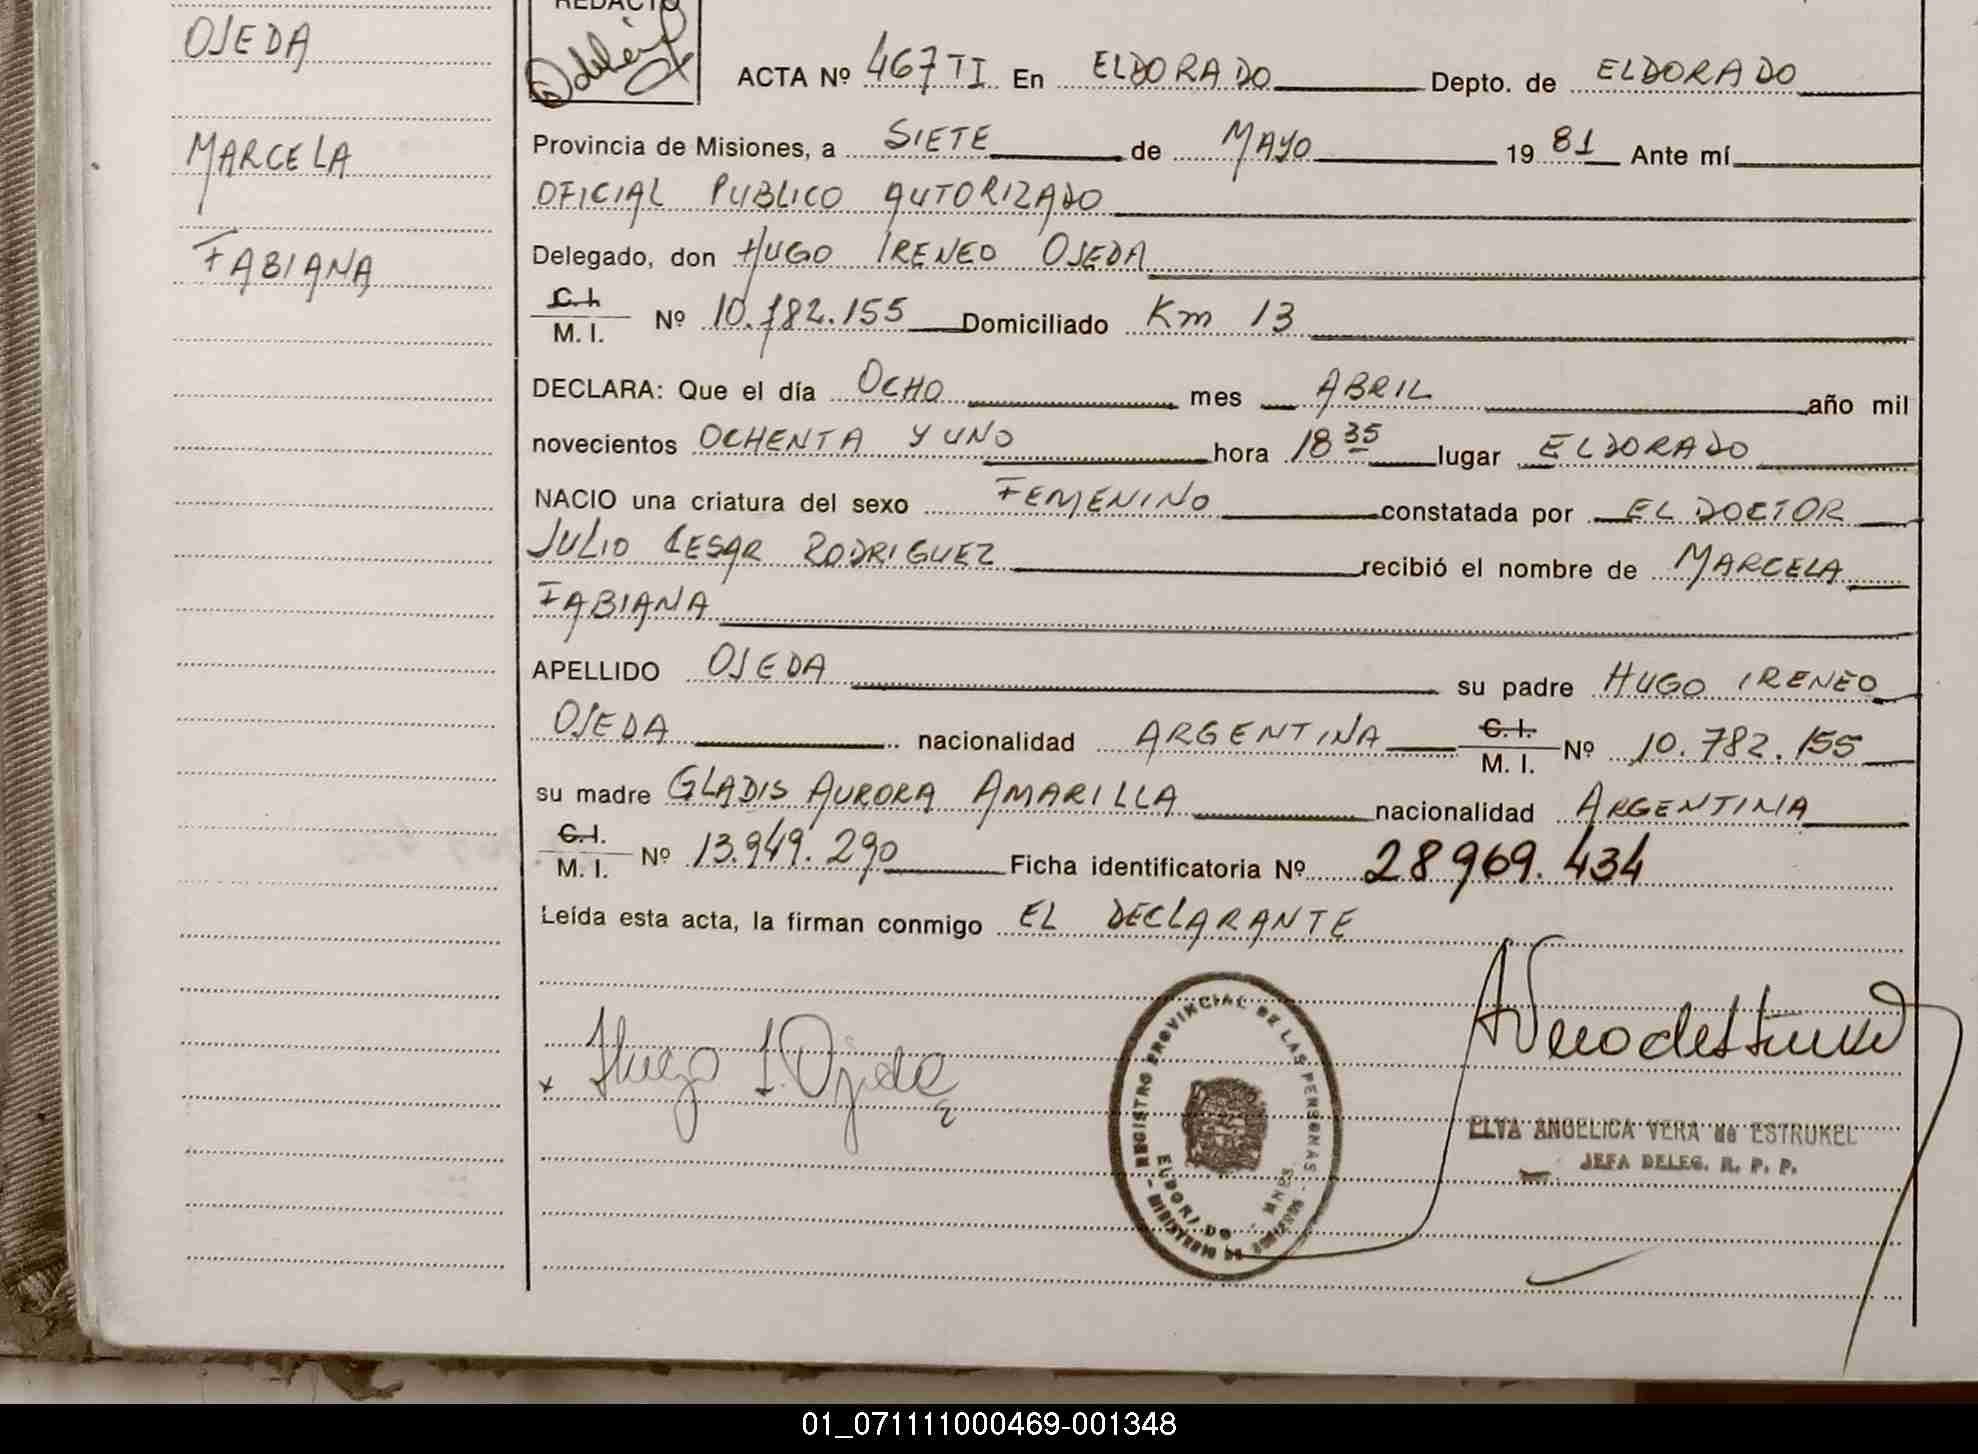 OJEDA
MARCELA
FABIANA
REDACTO
ACTA Nº 467 TI En ELDORADO Depto. de ELDORADO
Provincia de Misiones, a SIETE de MAYO 19 81 Ante mí
OFICIAL PUBLICO AUTORIZADO
Delegado, don HUGO IRENEO OJEDA
C.I.
M. I. Nº 10.782.155 Domiciliado Km 13
DECLARA: Que el día OCHO mes ABRIL año mil
novecientos OCHENTA Y UNO hora 18 35 lugar ELDORADO
NACIO una criatura del sexo FEMENINO constatada por EL DOCTOR
JULIO CESAR RODRIGUEZ recibió el nombre de MARCELA
FABIANA
APELLIDO OJEDA su padre HUGO IRENEO
OJEDA nacionalidad ARGENTINA C.I. M. I. Nº 10.782.155
su madre GLADIS AURORA AMARILLA nacionalidad ARGENTINA
C.I.
M. I. Nº 13.949.290 Ficha identificatoria Nº 28969.434
Leída esta acta, la firman conmigo EL DECLARANTE
Hugo I. Ojeda
REGISTRO PROVINCIAL DE LAS PERSONAS
ELDORADO - MNES
ELVA ANGELICA VERA de ESTRUKEL
JEFA DELEG. R. P. P.
01_071111000469-001348